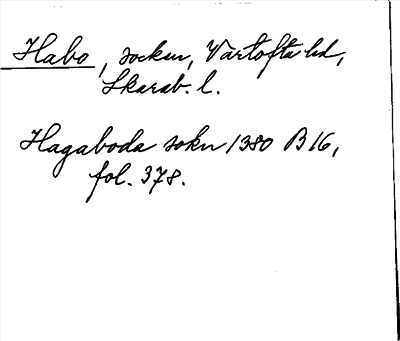 Habo, socken, Vartofta hd,
Skarab. l.
Hagaboda sokn 1380 B 16,
fol. 378.